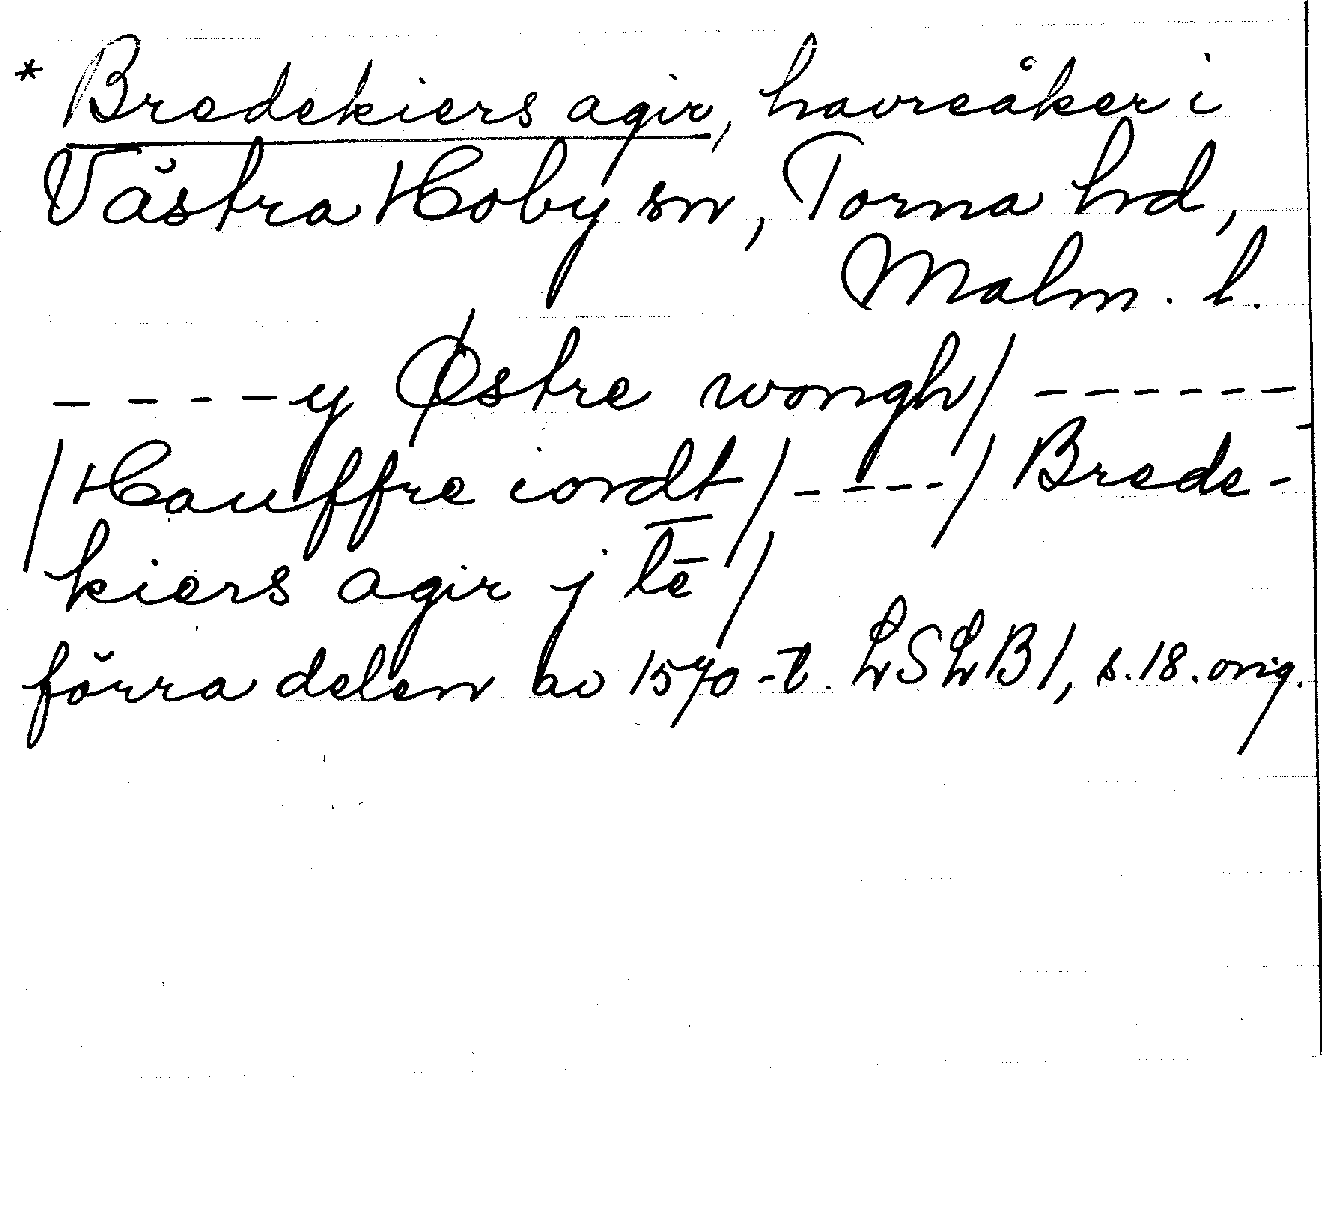 * Bredekiers agir, havreåker i
Västra Hoby sn, Torna hd,
Malm. l.
- - - - y Østre wongh/ - - - - - -
/Hauffre iordt/ - - - - / Brede-
kiers agir j l̅e̅ /
förra delen av 1570-t. LSLB1, s. 18. orig.